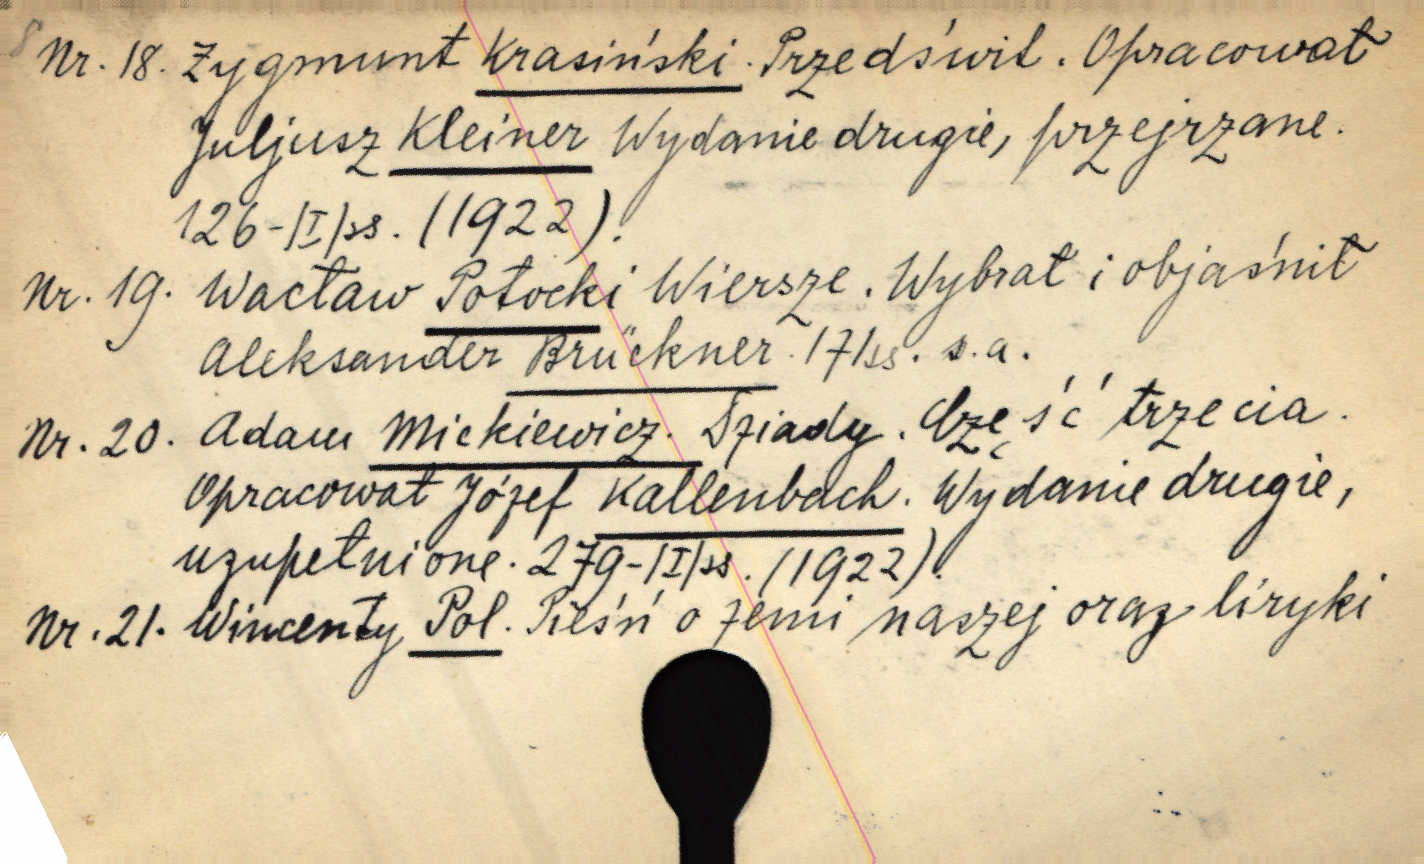 8
Nr. 18. Zygmunt Krasiński. Przedświt. Opracował
Juljusz Kleiner Wydanie drugie, przejrzane.
126-|I|ss. (1922).
Nr. 19. Wacław Potocki Wiersze. Wybrał i objaśnił
Aleksander Brückner. 171ss. s.a.
Nr. 20. Adam Mickiewicz. Dziady. Część trzecia.
Opracował Józef Kallenbach. Wydanie drugie,
uzupełnione. 279-|I|ss. (1922).
Nr. 21. Wincenty Pol. Pieśń o zemi naszej oraz liryki